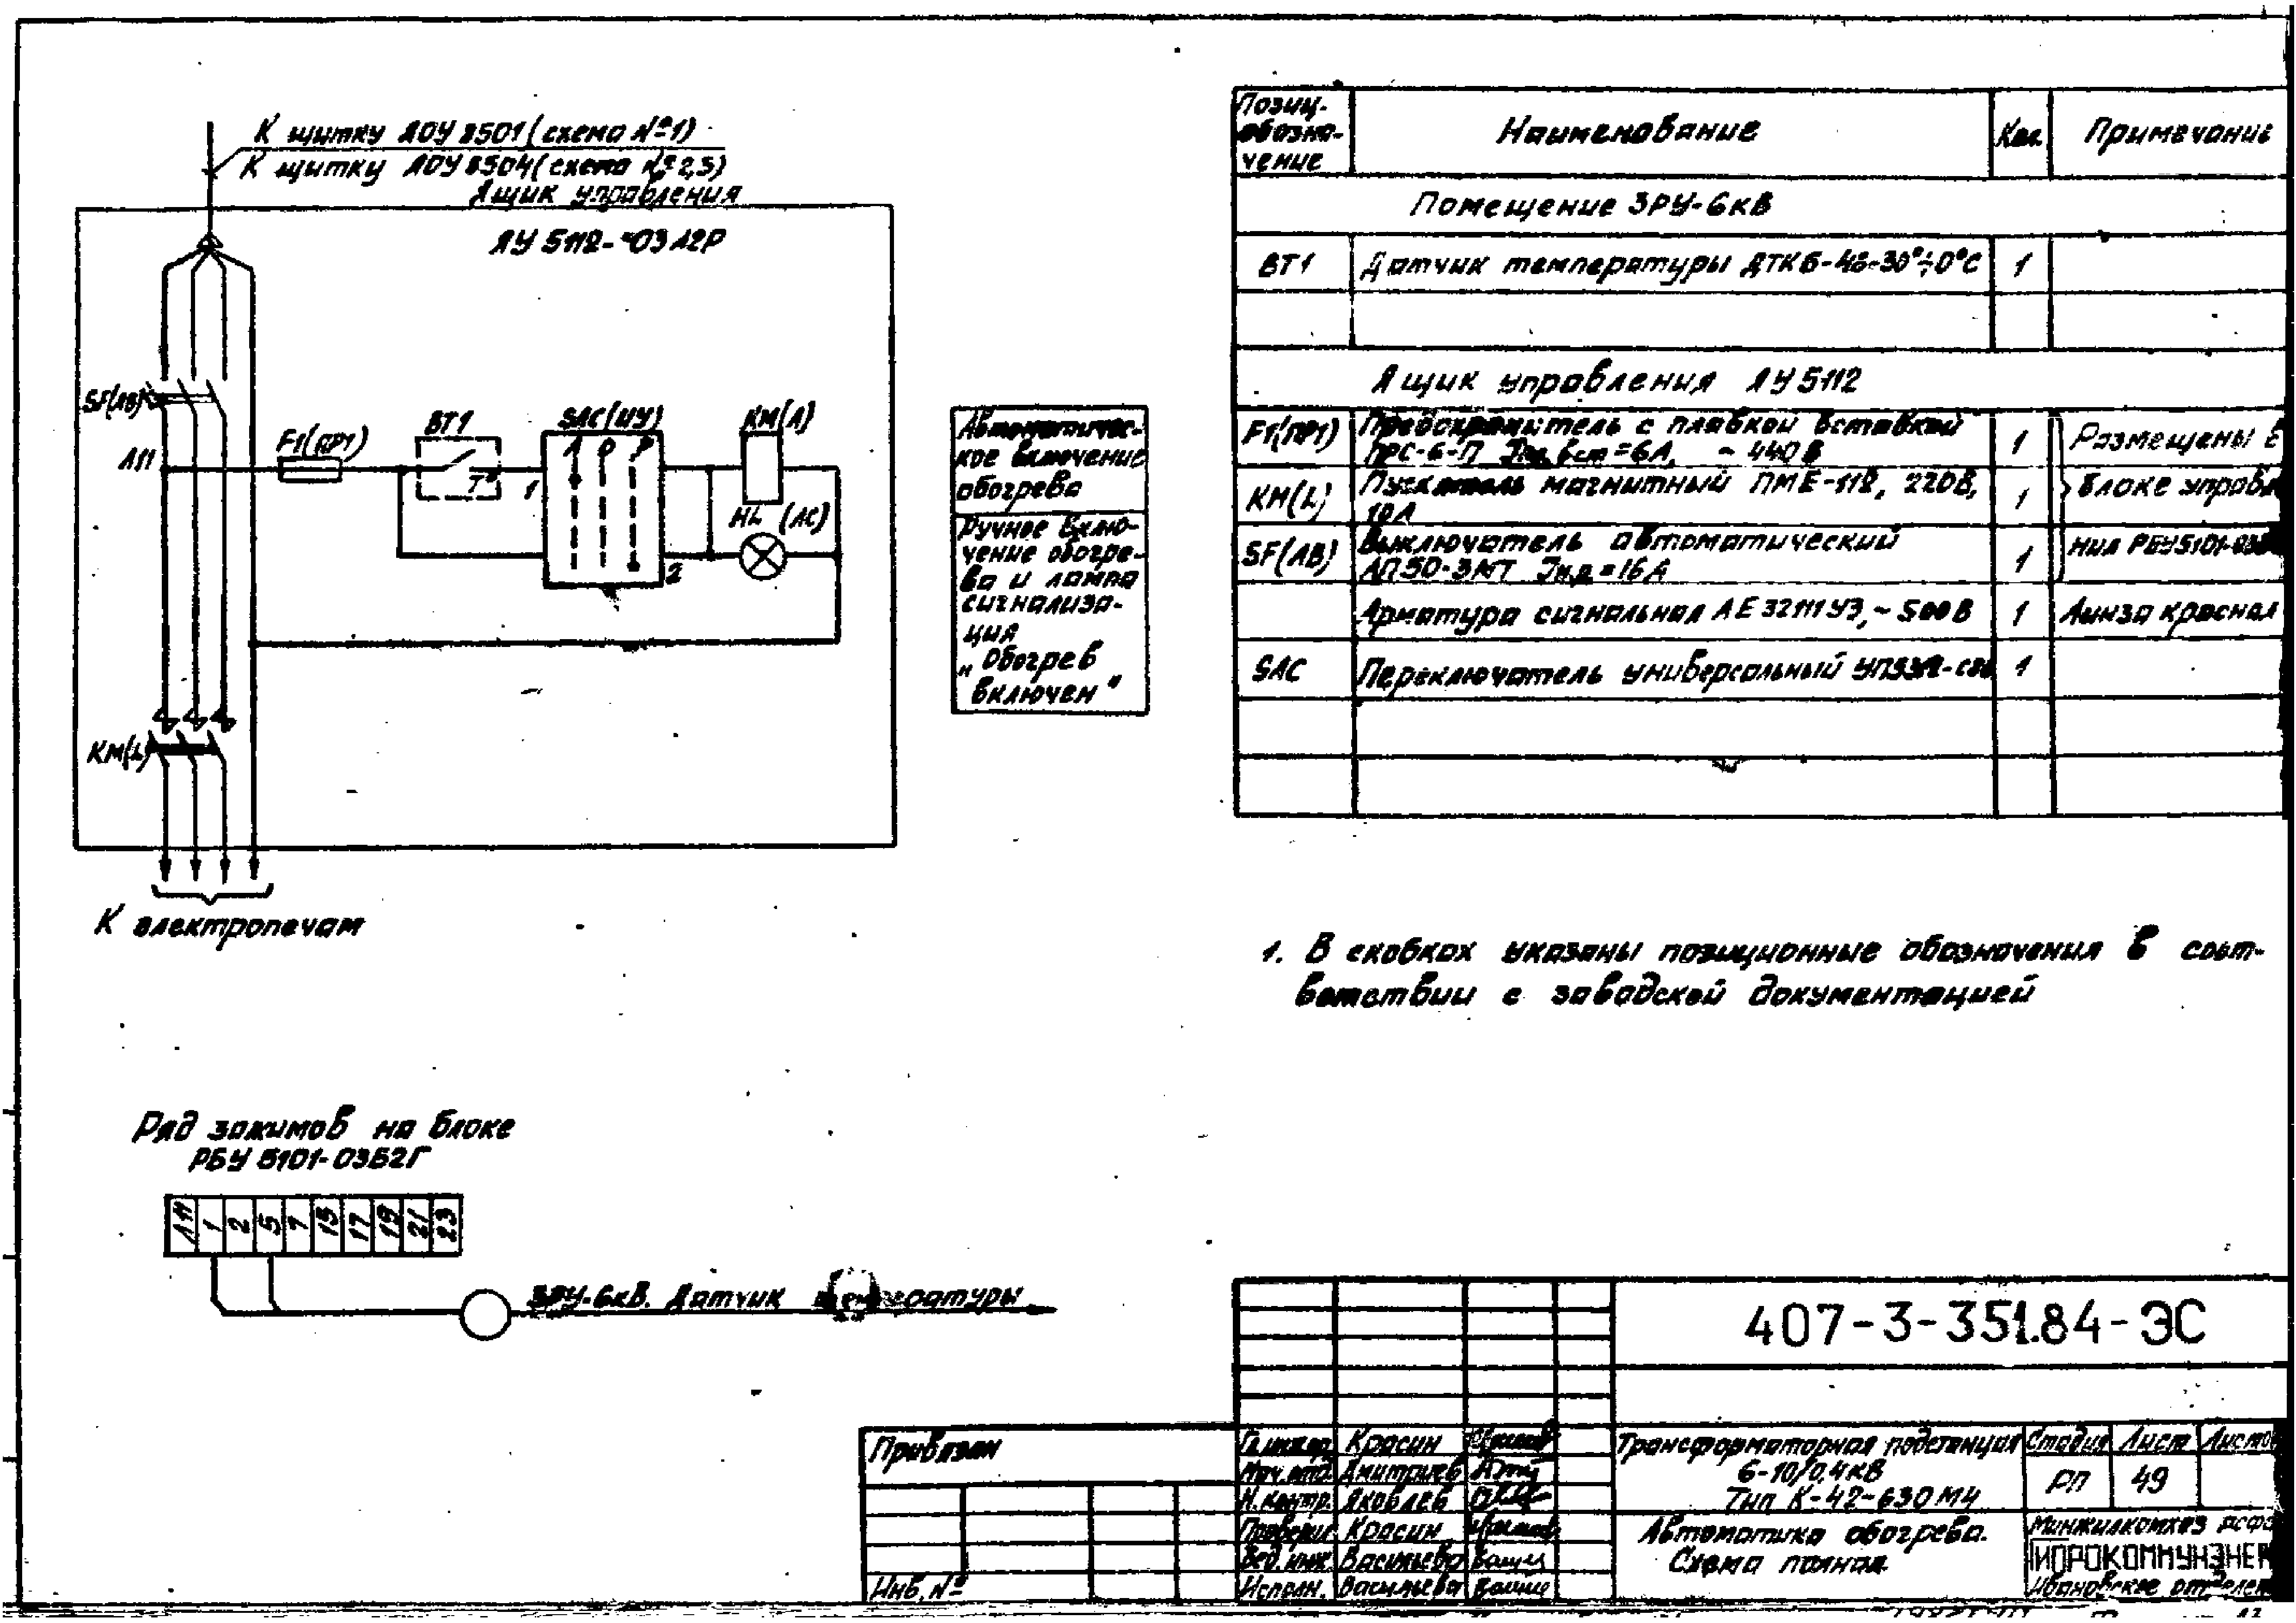 К щитку ЯОУ 8501 (схема №1)
К щитку ЯОУ 8504 (схема №2,3)
Ящик управления
ЯУ 5112-03А2Р
SF(АВ)
А11
F1(ПР1)
ВТ1
Т°
SAC(ИУ)
А О Р
1
2
КМ(Л)
HL (ЛС)
КМ(L)
К электропечам
Автоматичес-
кое включение
обогрева
Ручное вклю-
чение обогре-
ва и лампа
сигнализа-
ция
„Обогрев
включен"
Позиц.
обозна-
чение
Наименование
Кол.
Примечание
Помещение ЗРУ-6кВ
ВТ1
Датчик температуры ДТКБ-48-30°÷0°С
1
Ящик управления ЯУ5112
F1(ПР1)
Предохранитель с плавкой вставкой
ПРС-6-П Jпл.вст=6А, ~440В
1
Размещены в
КМ(L)
Пускатель магнитный ПМЕ-112, 220В,
10А
1
блоке управле
SF(АВ)
Выключатель автоматический
АП50-3МТ Jн.р=16А
1
ния РБУ5101-03Б
Арматура сигнальная АЕ32111У3, ~500В
1
Линза красная
SAC
Переключатель универсальный
1
1. В скобках указаны позиционные обозначения в соот-
ветствии с заводской документацией
Ряд зажимов на блоке
РБУ 5101-03Б2Г
А11 1 2 5 7 15 17 19 21 23
ЗРУ-6кВ. Датчик температуры
407-3-351.84-ЭС
Привязан
Инб. №
Гл.инж.пр. Красин
Нач.отд. Дмитриев
Н.контр. Яковлев
Проверил Красин
Вед.инж. Васильева
Исполн. Васильева
Трансформаторная подстанция
6-10/0,4кВ
Тип К-42-630М4
Стадия Лист Листов
РП 49
Автоматика обогрева.
Схема полная
Минжилкомхоз РСФС
ГИПРОКОММУНЭНЕР
Ивановское отделен